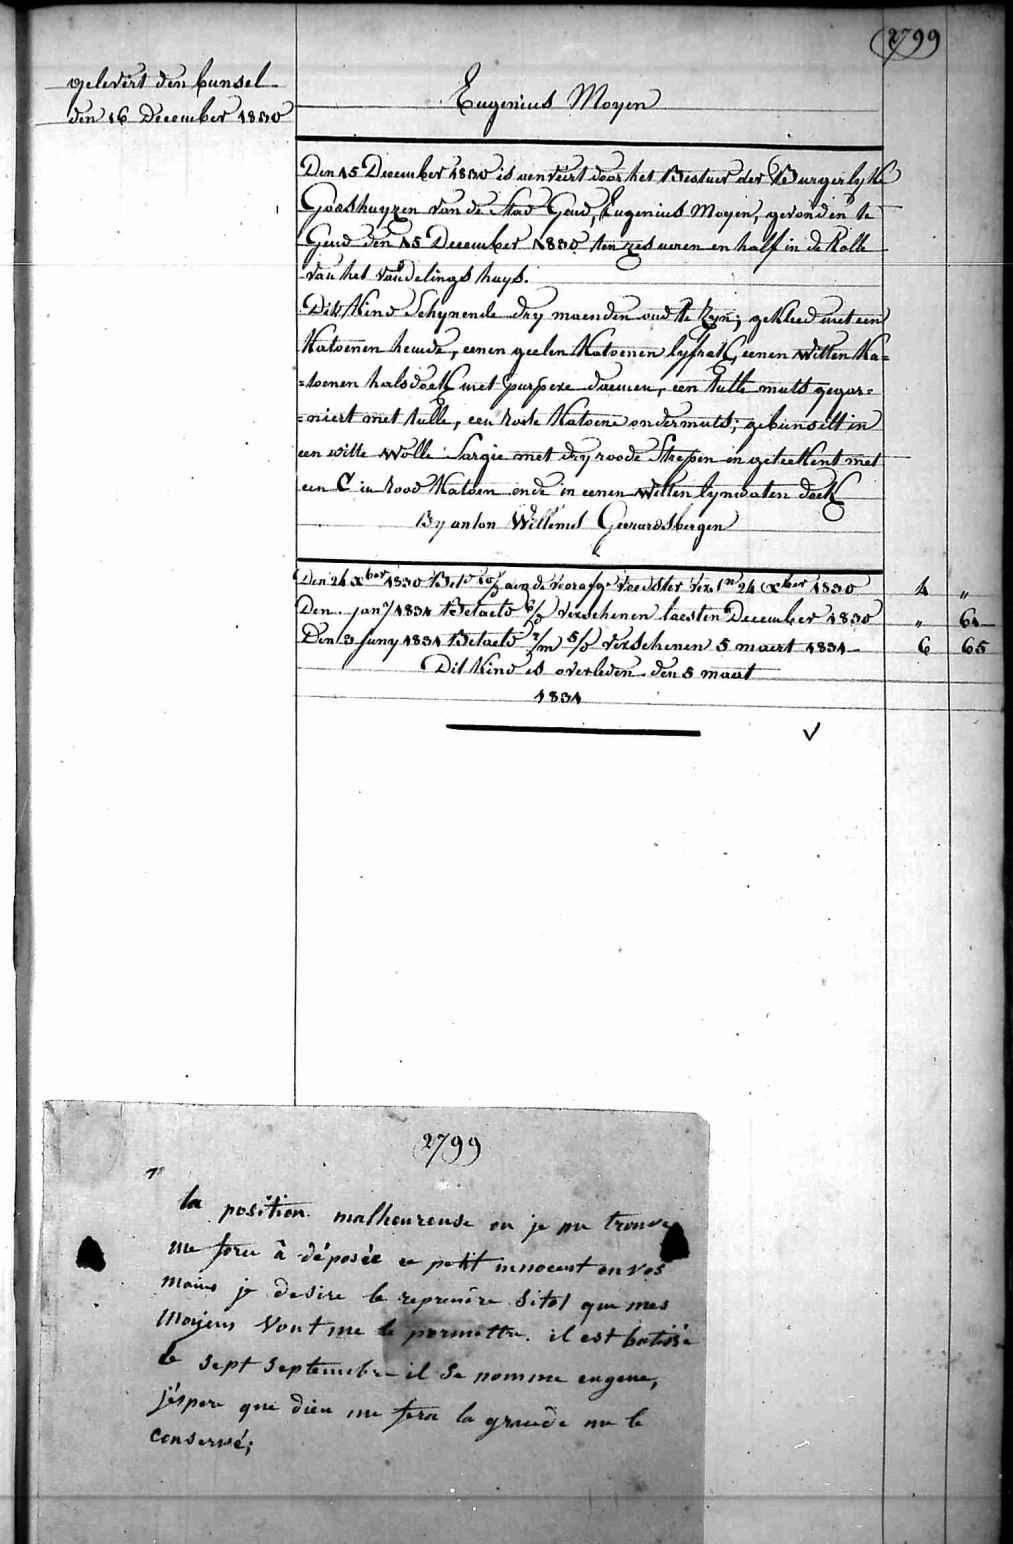 2799
gelevert den bunsel
den 16 December 1830
Eugenius Moyen
Den 15 December 1830 is aenveirt door het Bestuer der Burgerlyke
Godshuyzen van de Stad Gend, Eugenius Moyen, gevonden te
Gend den 15 December 1830 ten zes ueren en half in de Rolle
van het vondelings huys.
Dit Kind Schynende dry maenden oud te zyn; gekleed met een
Katoenen hemde, eenen geelen Katoenen lyfrok, eenen witten Ka=
=toenen halsdoek met purpere daemen, een tulle muts gegar=
=niert met tulle, een roode Katoene ondermuts; gebunselt in
een witte wolle Sargie met dry roode Strepen en geteekent met
een C in Rood Katoen ende in eenen witten lynwaten doek
By anton Willems Geeraerdsbergen
Den 24 Xber 1830 Bet.d aen de voorafg.e voedster 24 Xber 1830 4 "
Den jan.y 1831 Betaeld 6/d verschenen laesten December 1830 " 64
Den 3 juny 1831 Betaeld 2/m 5/d verschenen 5 maert 1831 6 65
Dit Kind is overleden den 5 maert
1831
2799
la position malheureuse ou je me trouve
me force à déposée ce petit innocent en vos
mains je desire le reprendre sitot que mes
moyens vont me le permettre. il est batisé
le sept septembre il se nomme eugene,
j'éspere que dieu me fera la graude me le
conservé;